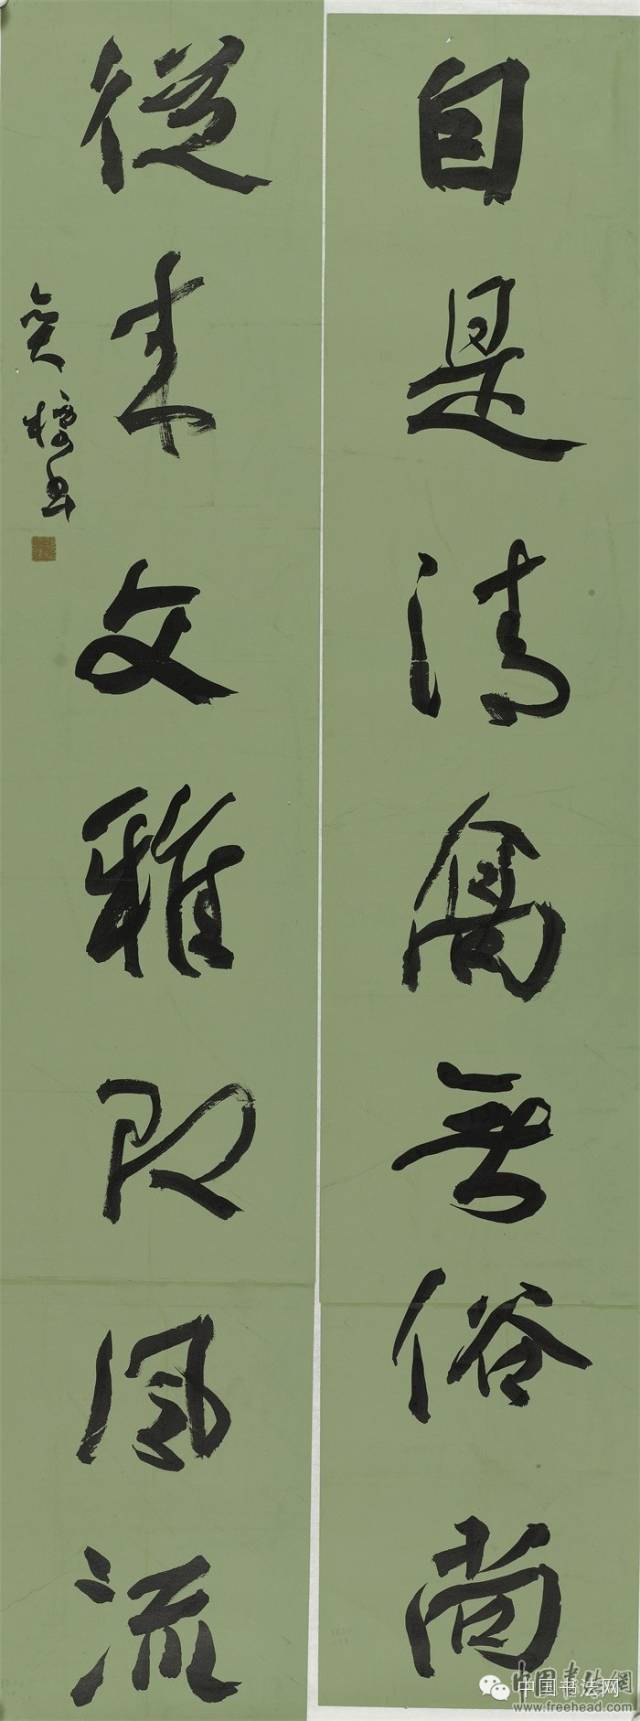 自是清高無俗尚
從來文雅即風流
中国书法网
中国书法网
www.freehead.com